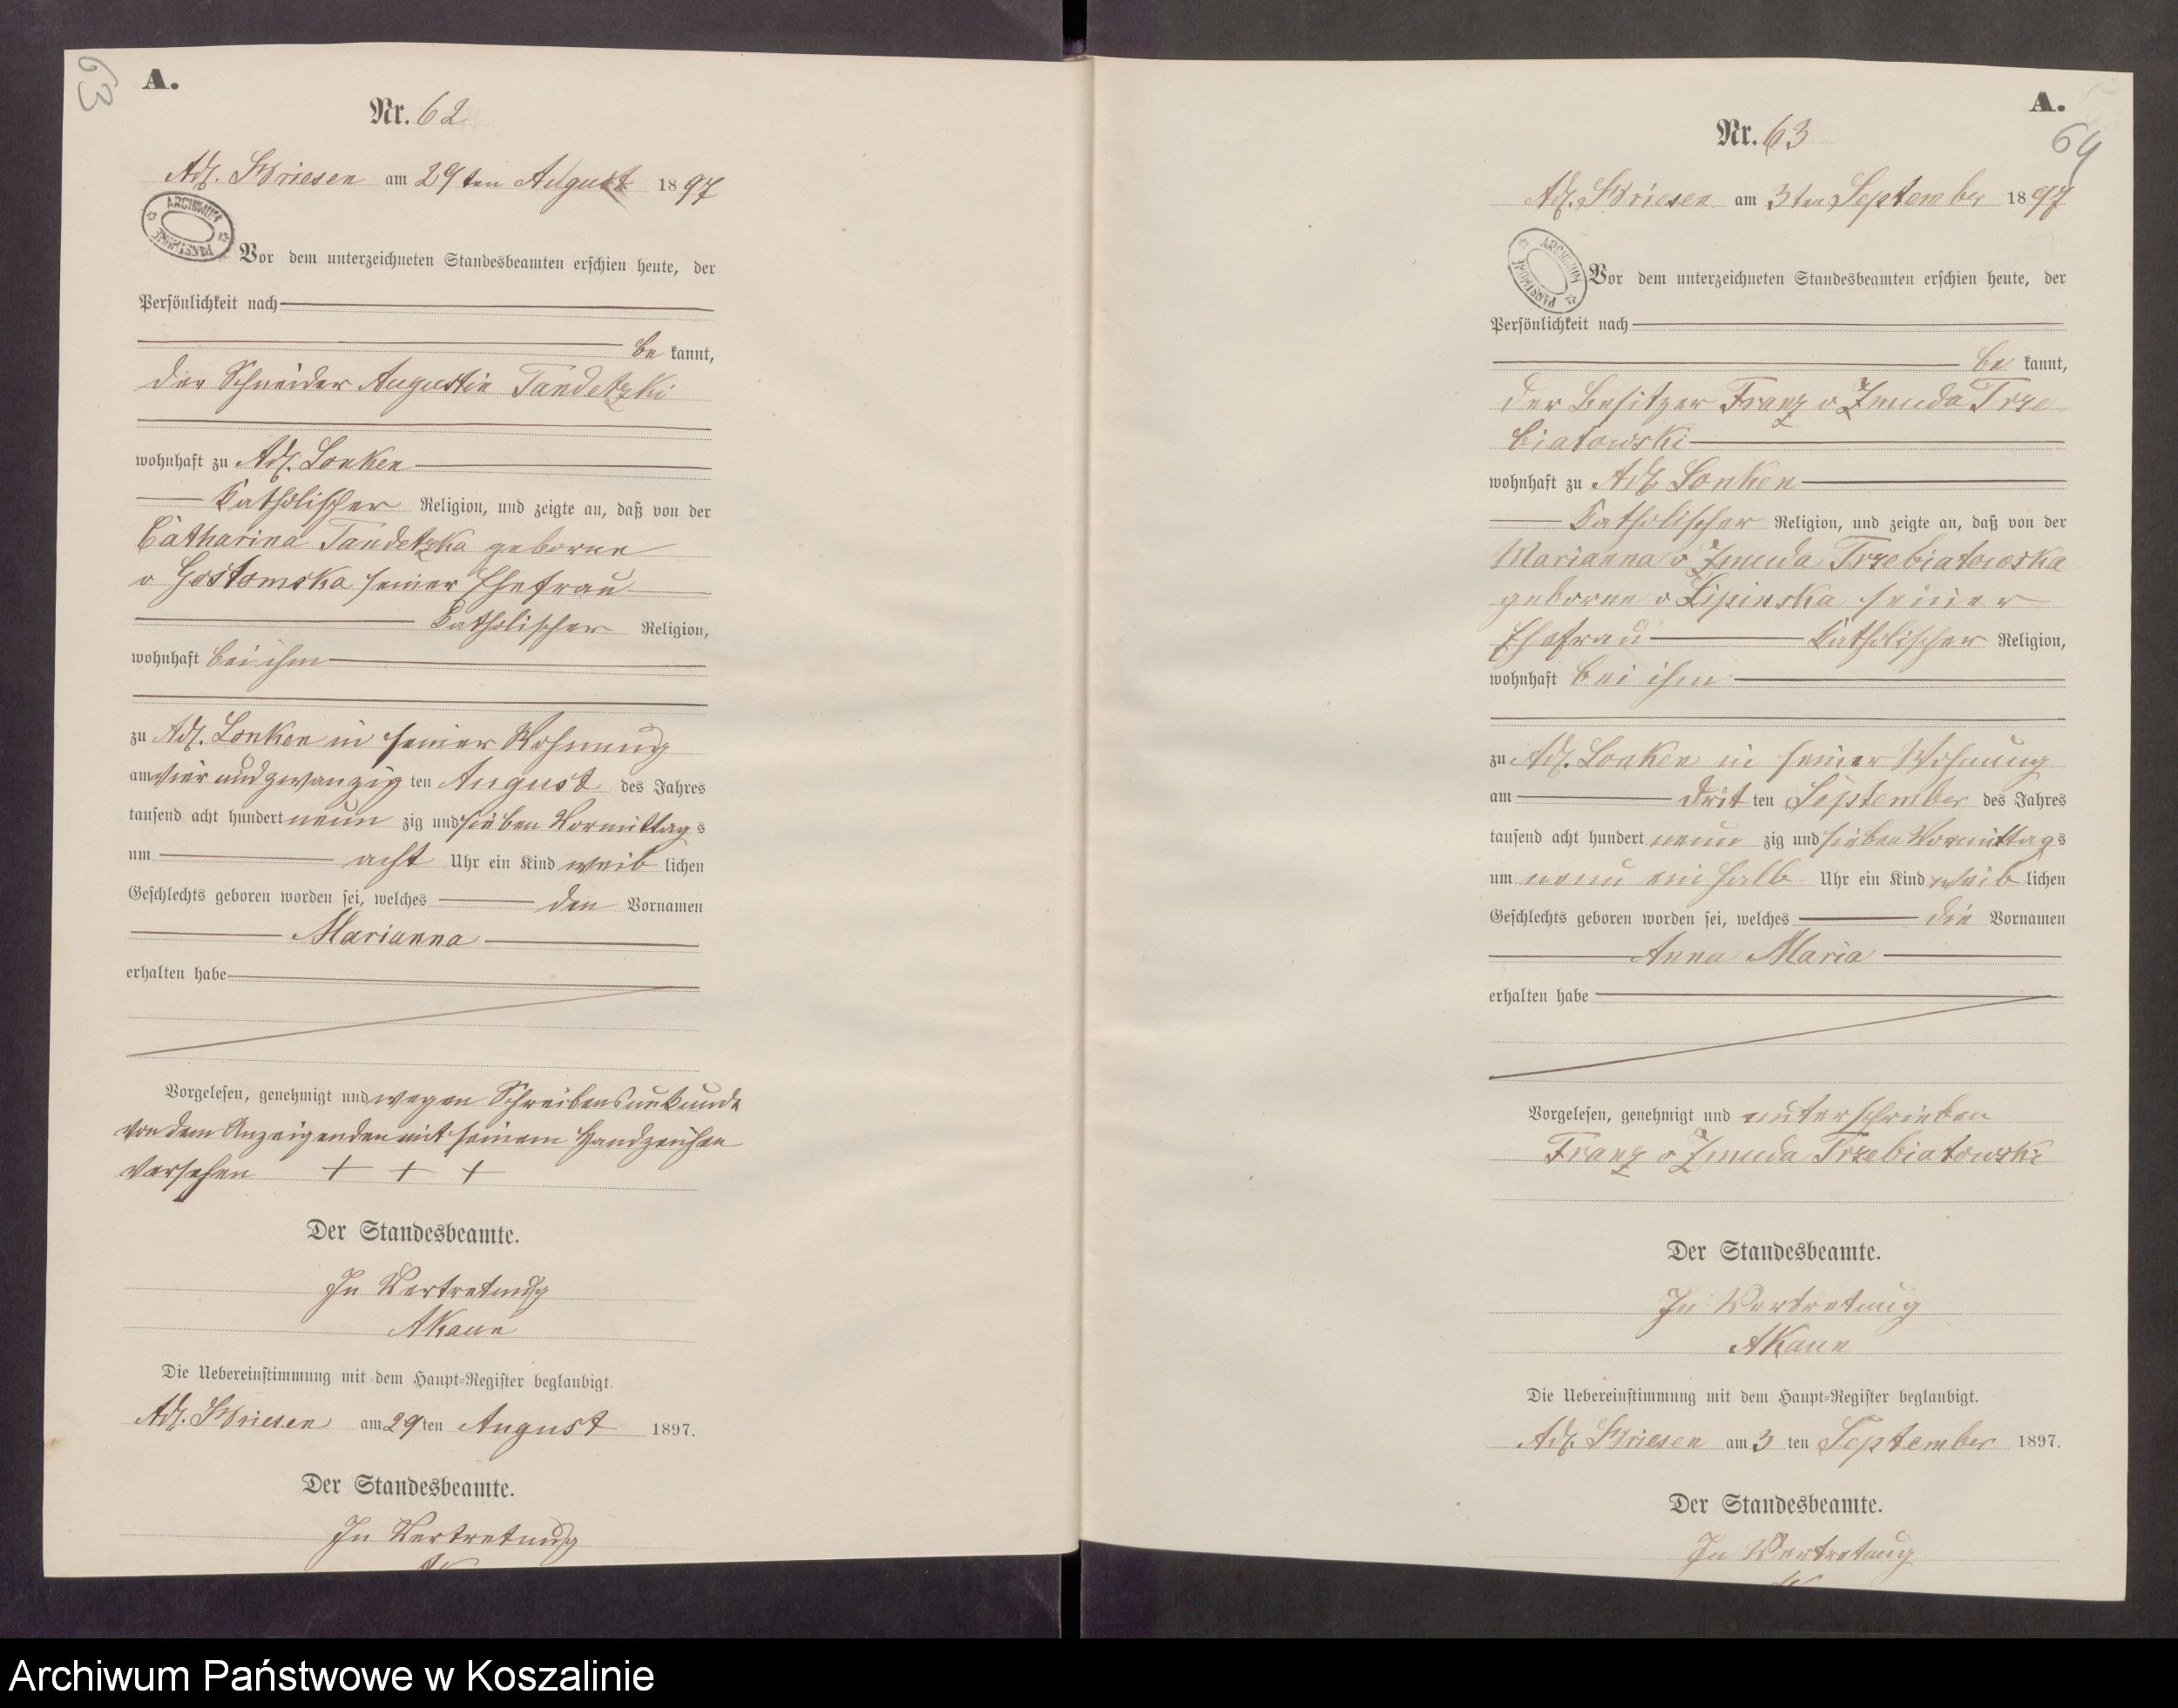 63
A.
Nr. 62
Adl. Briesen am 29ten August 1897
ARCHIWUM PAŃSTWOWE
Vor dem unterzeichneten Standesbeamten erschien heute, der
Persönlichkeit nach
be kannt,
der Schneider Augustin Tandetzki
wohnhaft zu Adl. Lonken
Katholischer Religion, und zeigte an, daß von der
Catharina Tandetzka geborne
v Gostomska seiner Ehefrau
Katholischer Religion,
wohnhaft bei ihm
zu Adl. Lonken in seiner Wohnung
am vier und zwanzig ten August des Jahres
tausend acht hundert neun zig und sieben Vormittag s
um acht Uhr ein Kind weib lichen
Geschlechts geboren worden sei, welches den Vornamen
Marianna
erhalten habe
Vorgelesen, genehmigt und wegen Schreibensunkunde
von dem Anzeigenden mit seinem Handzeichen
versehen + + +
Der Standesbeamte.
In Vertretung
AKaun
Die Uebereinstimmung mit dem Haupt-Register beglaubigt.
Adl. Briesen am 29 ten August 1897.
Der Standesbeamte.
In Vertretung
A.
64
Nr. 63
Adl. Briesen am 3ten September 1897
ARCHIWUM PAŃSTWOWE
Vor dem unterzeichneten Standesbeamten erschien heute, der
Persönlichkeit nach
be kannt,
der Besitzer Franz v Zmuda Trze
biatowski
wohnhaft zu Adl. Lonken
Katholischer Religion, und zeigte an, daß von der
Marianna v Zmuda Trzebiatowska
geborne v Lipinska seiner
Ehefrau Katholischer Religion,
wohnhaft bei ihm
zu Adl. Lonken in seiner Wohnung
am drit ten September des Jahres
tausend acht hundert neun zig und sieben Vormittag s
um neun ein halb Uhr ein Kind weib lichen
Geschlechts geboren worden sei, welches die Vornamen
Anna Maria
erhalten habe
Vorgelesen, genehmigt und unterschrieben
Franz v Zmuda Trzebiatowski
Der Standesbeamte.
In Vertretung
AKaun
Die Uebereinstimmung mit dem Haupt-Register beglaubigt.
Adl. Briesen am 3 ten September 1897.
Der Standesbeamte.
In Vertretung
Archiwum Państwowe w Koszalinie